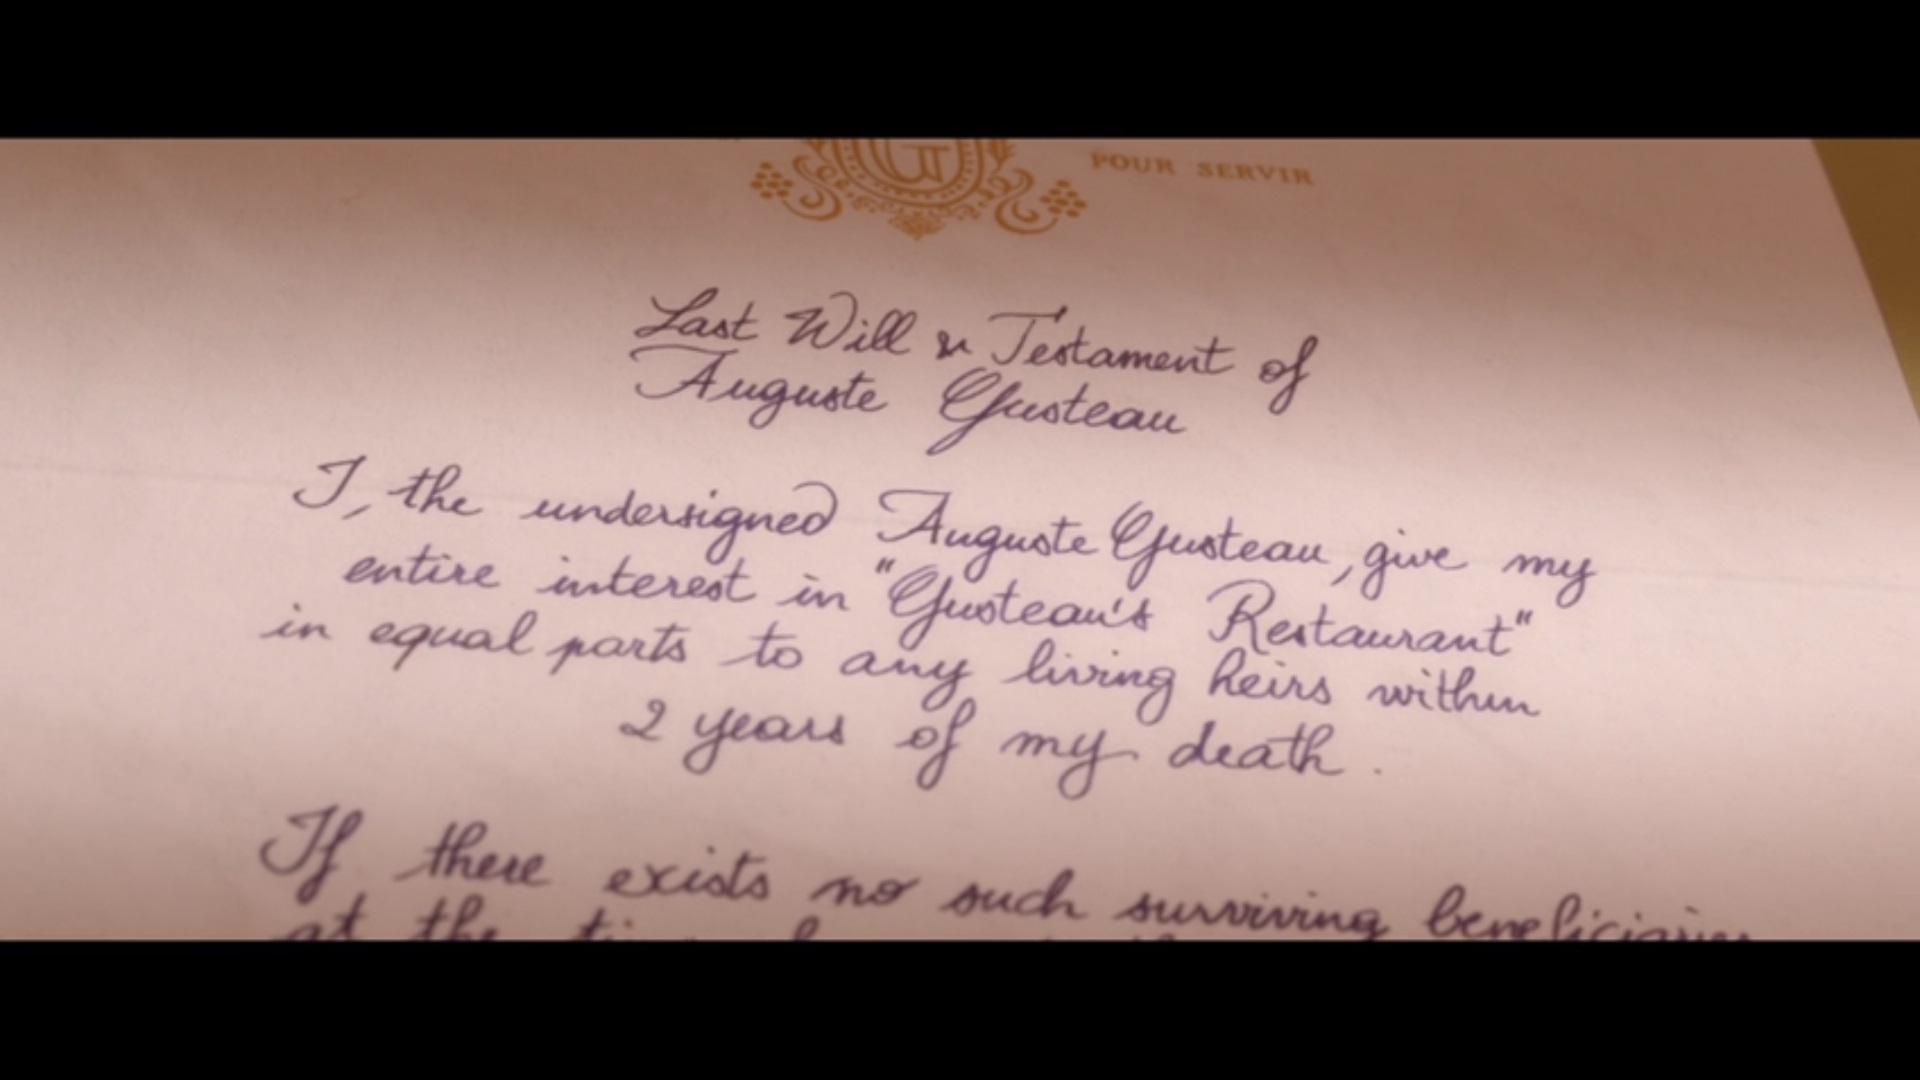 G
POUR SERVIR
Last Will & Testament of
Auguste Gusteau
I, the undersigned Auguste Gusteau, give my
entire interest in "Gusteau's Restaurant"
in equal parts to any living heirs within
2 years of my death.
If there exists no such surviving beneficiaries
at the